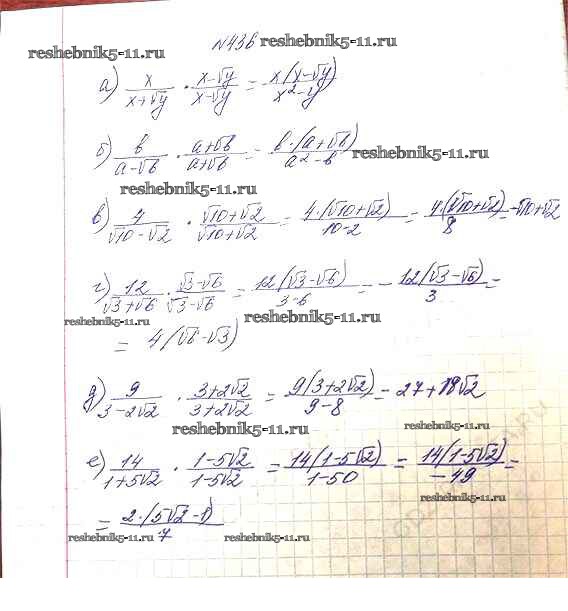 №436 reshebnik5-11.ru
reshebnik5-11.ru
а) x/(x+√y) · (x-√y)/(x-√y) = x(x-√y)/(x²-y)
б) b/(a-√b) · (a+√b)/(a+√b) = b·(a+√b)/(a²-b)
reshebnik5-11.ru
в) 4/(√10-√2) · (√10+√2)/(√10+√2) = 4·(√10+√2)/(10-2) = 4·(√10+√2)/8 = √10+√2
г) 12/(√3+√6) · (√3-√6)/(√3-√6) = 12(√3-√6)/(3-6) = -12(√3-√6)/3 =
reshebnik5-11.ru reshebnik5-11.ru
= 4(√6-√3)
д) 9/(3-2√2) · (3+2√2)/(3+2√2) = 9(3+2√2)/(9-8) = 27+18√2
reshebnik5-11.ru reshebnik5-11.ru
е) 14/(1+5√2) · (1-5√2)/(1-5√2) = 14(1-5√2)/(1-50) = 14(1-5√2)/(-49) =
reshebnik5-11.ru
= 2·(5√2-1)/7
reshebnik5-11.ru reshebnik5-11.ru